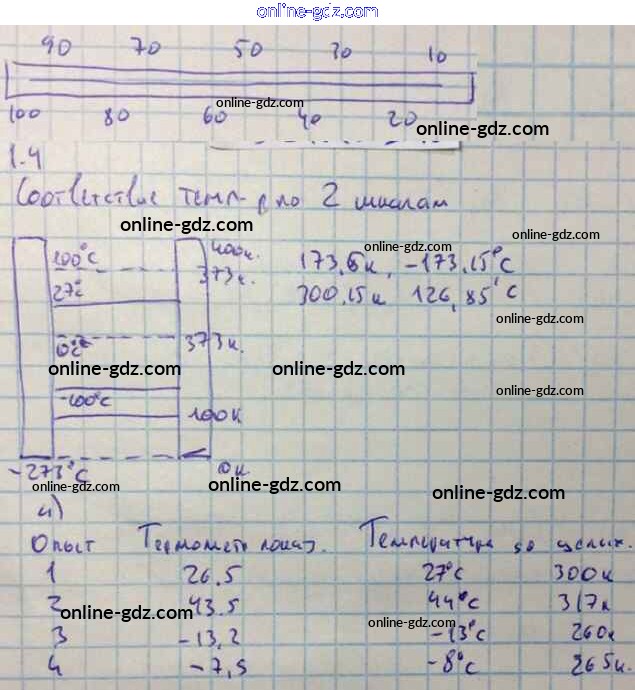 online-gdz.com
90 70 50 30 10
100 80 60 40 20
online-gdz.com
online-gdz.com
1.4
Соответствие темп-р по 2 шкалам
online-gdz.com
online-gdz.com
100°C 400к. 173,15к, -173,15°C
online-gdz.com
27°C 373к. 300.15к 126,85°C
online-gdz.com
0°C 373к.
online-gdz.com
online-gdz.com
online-gdz.com
-100°C 100К
-273°C 0к
online-gdz.com
online-gdz.com
online-gdz.com
4)
Опыт Термометр показ. Температура до целых.
1 26.5 27°C 300к
2 43.5 44°C 317к
online-gdz.com
online-gdz.com
3 -13,2 -13°C 260к
4 -7,5 -8°C 265к.
online-gdz.com